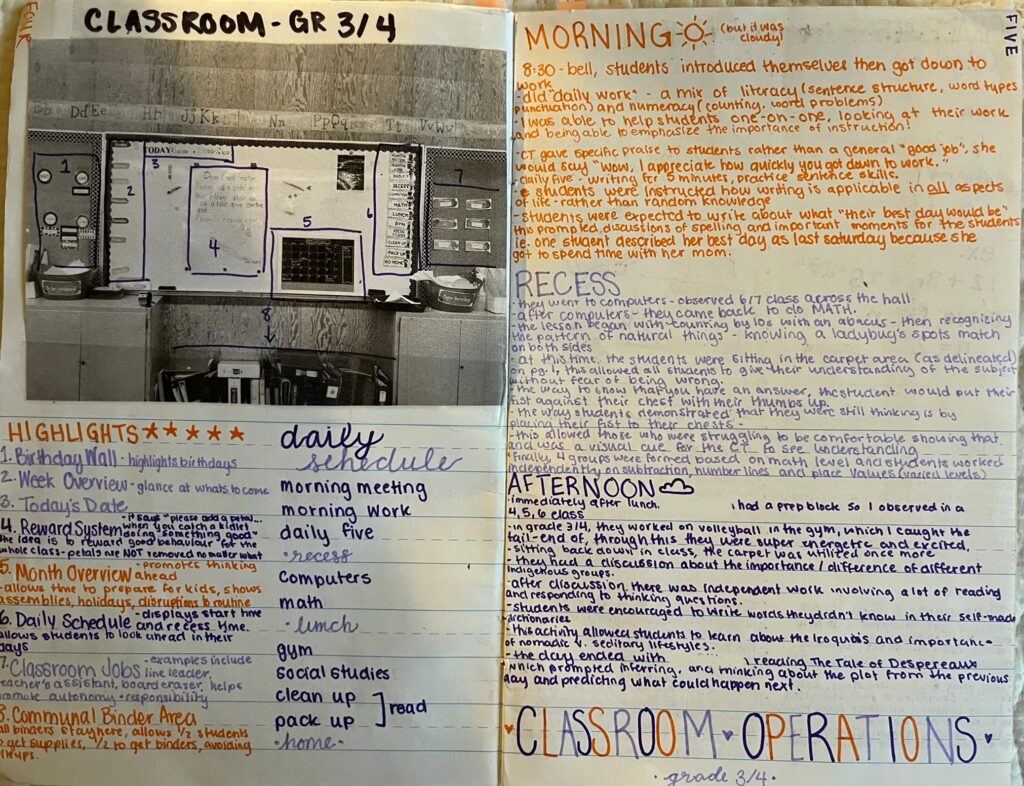 FOUR
CLASSROOM - GR 3/4
Bb
DdEe
Hh
JjKk
Nn
PpQq
Tt
VvWw
TODAY
1
2
3
4
5
6
7
8
RECESS
MATH
LUNCH
GYM
CLEAN UP
PACK UP
GO HOME
HIGHLIGHTS★★★★★
1. Birthday Wall - highlights birthdays
2. Week Overview - glance at whats to come
3. Today's Date
4. Reward System - it says "please add a petal...
when you catch a kidlet
doing something good"
the idea is to reward good behaviour for the
whole class - petals are NOT removed no matter what
5. Month Overview - promotes thinking
ahead
- allows time to prepare for kids, shows
assemblies, holidays, disruptions to routine
6. Daily Schedule - displays start time
and recess time.
allows students to look ahead in their
days
7. Classroom Jobs - examples include
line leader,
teacher's assistant, board eraser, helps
promote autonomy + responsibility
8. Communal Binder Area
all binders stay here, allows 1/2 students
to get supplies, 1/2 to get binders, avoiding
daily
schedule
morning meeting
morning work
daily five
• recess
computers
math
• lunch
gym
social studies
clean up
pack up ] read
• home •
FIVE
MORNING (but it was
cloudy)
8:30 - bell, students introduced themselves then got down to
work
- did "daily work" - a mix of literacy (sentence structure, word types
punctuation) and numeracy (counting, word problems)
- I was able to help students one-on-one, looking at their work
and being able to emphasize the importance of instruction!
- CT gave specific praise to students rather than a general "good job", she
would say "wow, I appreciate how quickly you got down to work."
- daily five - writing for 5 minutes, practice sentence skills.
students were instructed how writing is applicable in all aspects
of life - rather than random knowledge
- students were expected to write about what "their best day would be"
this prompted discussions of spelling and important moments for the students
ie. one student described her best day as last saturday because she
got to spend time with her mom.
RECESS
- they went to computers - observed 6/7 class across the hall
- after computers - they came back to do MATH.
- the lesson began with counting by 10s with an abacus - then recognizing
the pattern of natural things - knowing a ladybug's spots match
on both sides
- at this time, the students were sitting in the carpet area (as delineated)
on pg. 1, this allowed all students to give their understanding of the subject
without fear of being wrong.
- the way to show that you have an answer, the student would put their
fist against their chest with their thumbs up.
- the way students demonstrated that they were still thinking is by
placing their fist to their chests -
- this allowed those who were struggling to be comfortable showing that
and was a visual cue for the CT to see understanding
* Finally, 4 groups were formed based on math level and students worked
independently on subtraction, number lines, and place values (varied levels)
AFTERNOON
- immediately after lunch, I had a prep block so I observed in a
4, 5, 6 class
- in grade 3/4, they worked on volleyball in the gym, which I caught the
tail-end of, through this they were super energetic and excited.
- sitting back down in class, the carpet was utilized once more
- they had a discussion about the importance / difference of different
indigenous groups.
- after discussion, there was independent work involving a lot of reading
and responding to thinking questions.
- students were encouraged to write words they didn't know in their self-made
dictionaries
- this activity allowed students to learn about the Iroquois and importance
of nomadic v. seditary lifestyles.
- the day ended with reading The Tale of Despereaux
which prompted inferring, and thinking about the plot from the previous
day and predicting what could happen next.
♥ CLASSROOM ♥ OPERATIONS ♥
• grade 3/4 •